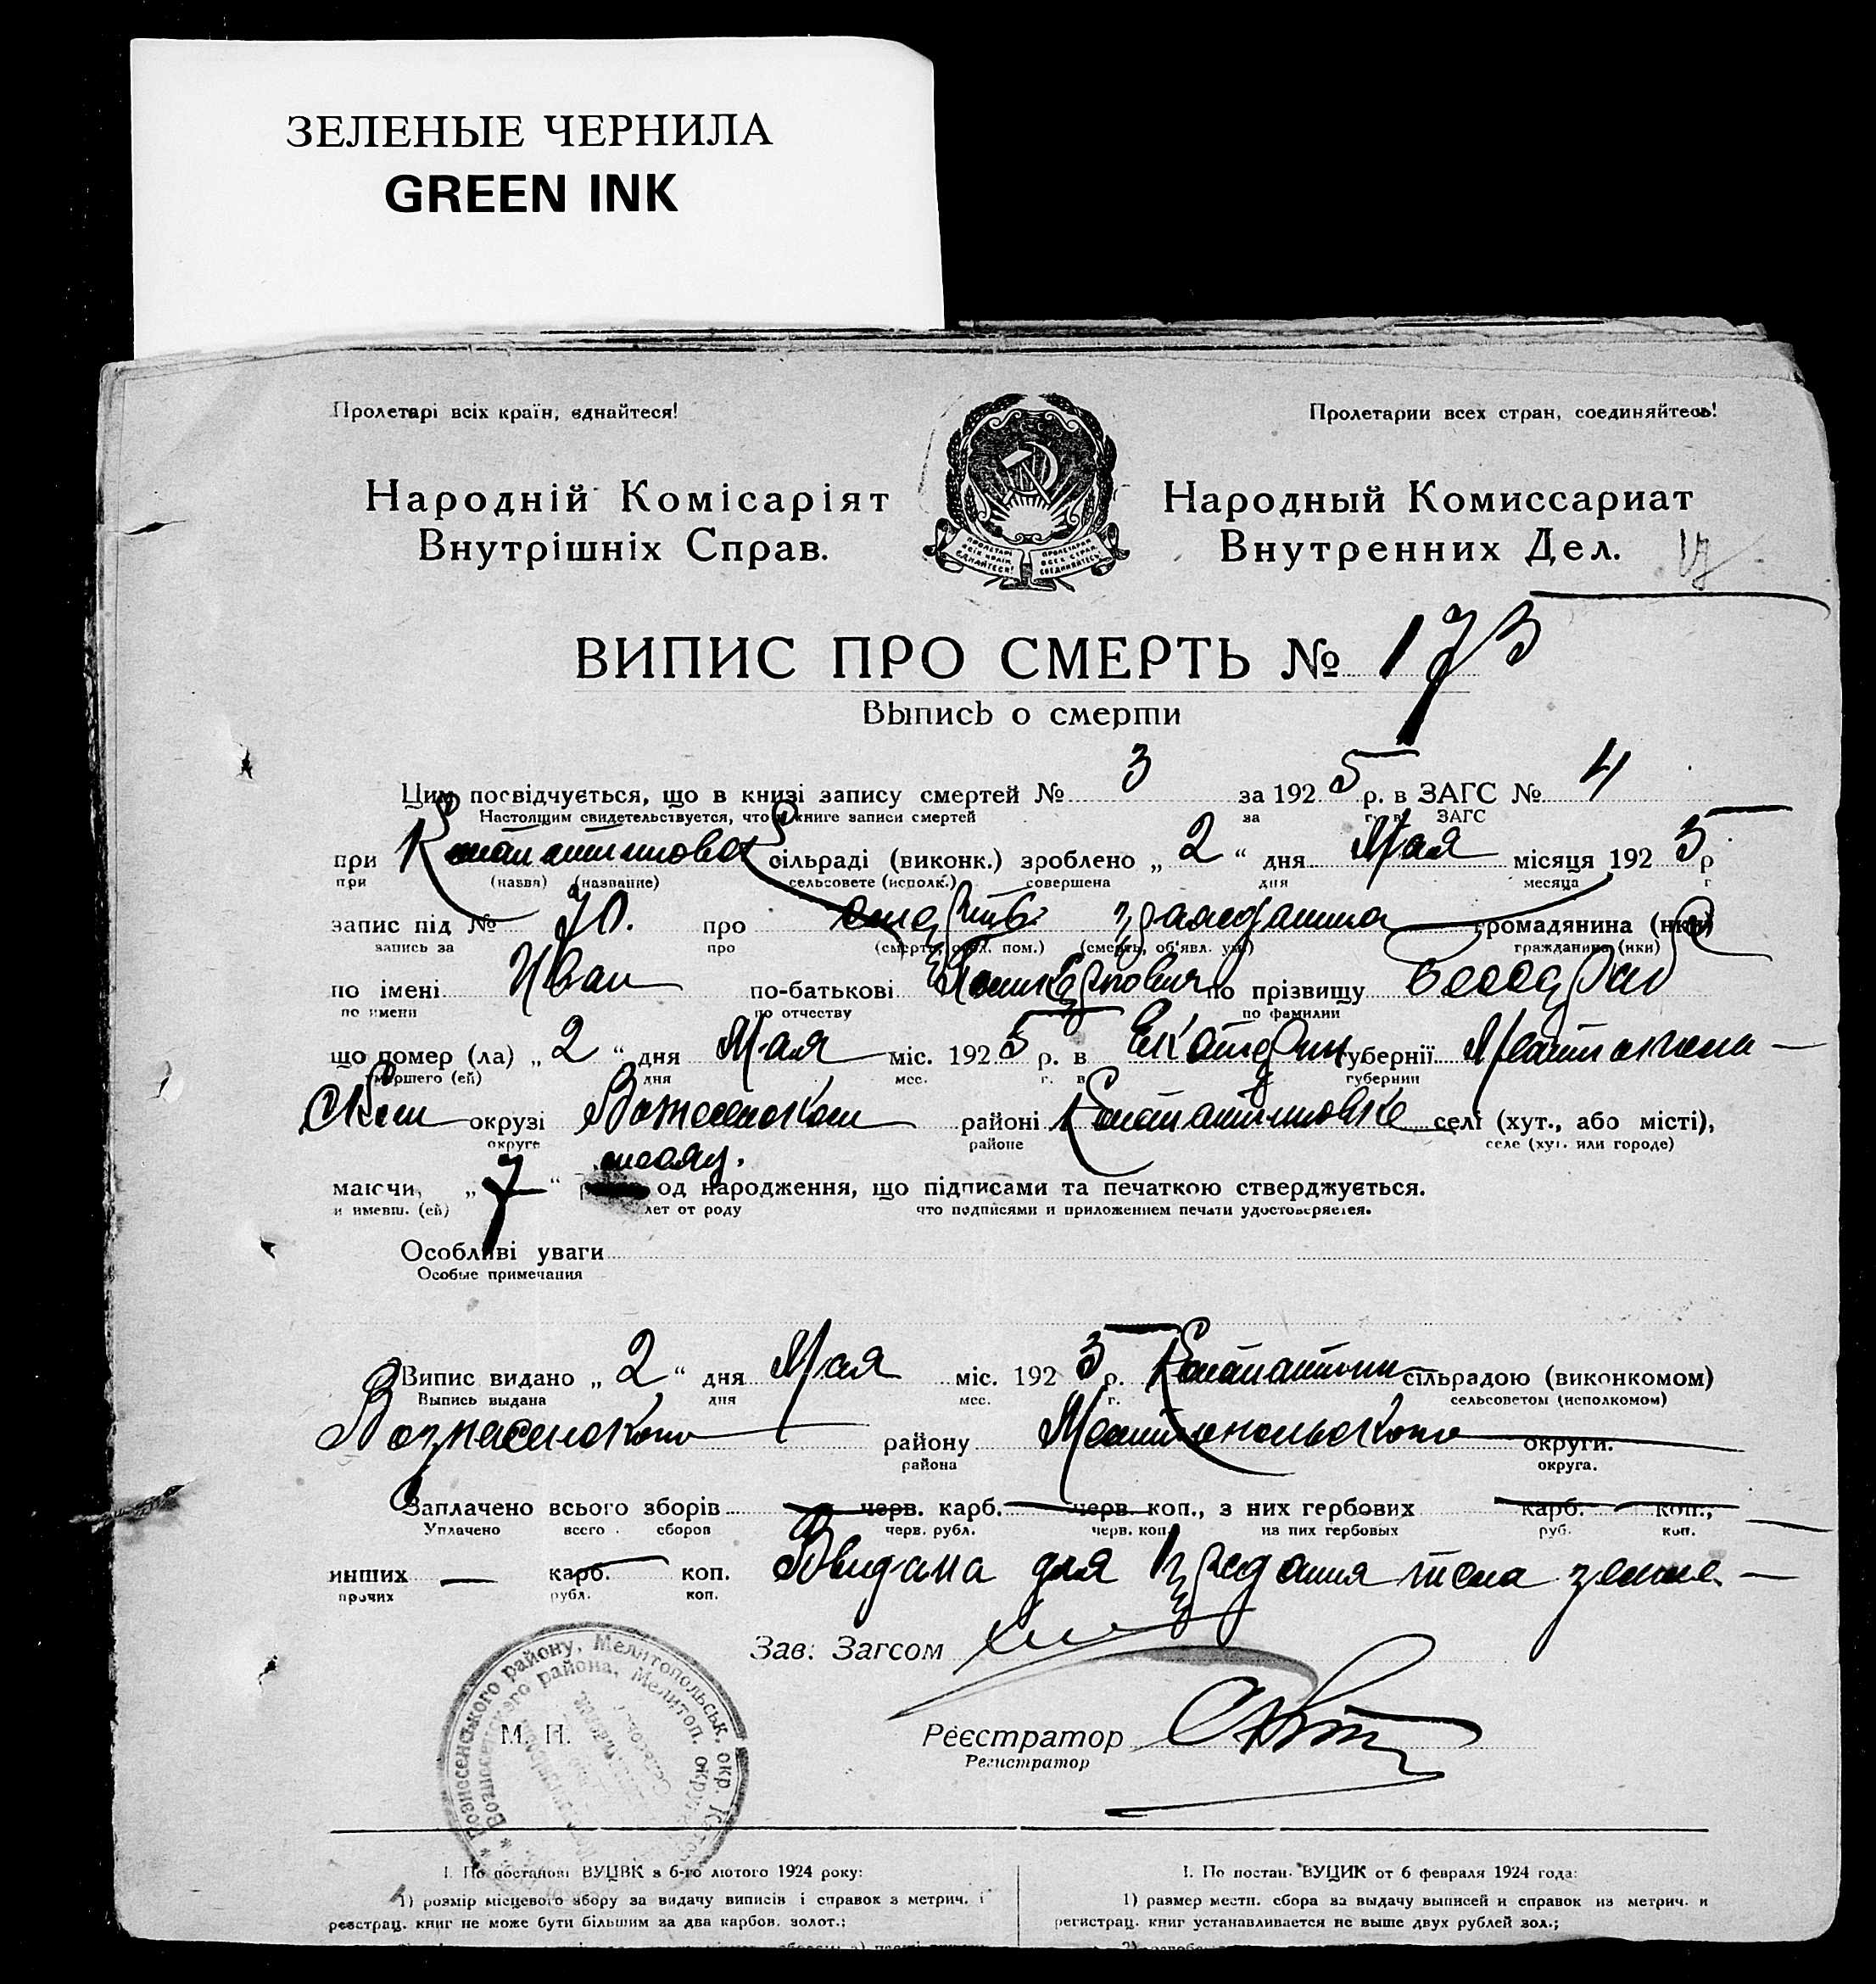 ЗЕЛЕНЫЕ ЧЕРНИЛА
GREEN INK
Пролетарі всіх країн, єднайтеся!
Пролетарии всех стран, соединяйтесь!
Народній Комісаріят
Внутрішніх Справ.
Народный Комиссариат
Внутренних Дел.
ПРОЛЕТАРІ ВСІХ КРАЇН ЄДНАЙТЕСЯ!
ПРОЛЕТАРИИ ВСЕХ СТРАН СОЕДИНЯЙТЕСЬ!
ВИПИС ПРО СМЕРТЬ № 173
Выпись о смерти
Цим посвідчується, що в книзі запису смертей № 3 за 1925 р. в ЗАГС № 4
Настоящим свидетельствуется, что в книге записи смертей за г. в ЗАГС
при сільраді (виконк.) зроблено „ 2 “ дня Мая місяця 1925 р
при (назва) (название) сельсовете (исполк.) совершена дня месяца г
запис під № 70. про смерть гражданина громадянина (нки)
запись за про (смерть, огол. пом.) (смерть, об'явл. ум.) гражданина (нки)
по імені Иван по-батькові по прізвищу
по имени по отчеству по фамилии
що помер (ла) „ 2 “ дня Мая міс. 1925 р. в Екатерин губернії Мелитополь—
умершего (ей) дня мес. г. в губернии
ском окрузі районі Константиновке селі (хут., або місті),
округе районе селе (хут. или городе)
месяц.
маючи, „ 7 “ од народження, що підписами та печаткою стверджується.
и имевш. (ей) лет от роду что подписями и приложением печати удостоверяется.
Особливі уваги
Особые примечания
Випис видано „ 2 “ дня Мая міс. 1925 р. Константин сільрадою (виконкомом)
Выпись выдана дня мес. г. сельсоветом (исполкомом)
Вознесенского району Мелитопольского округи.
района округа.
Заплачено всього зборів черв. карб. черв. коп., з них гербових карб. коп.,
Уплачено всего сборов черв. рубл. черв. коп. из них гербовых руб. коп.
инших — карб. коп. Выдана для предания тела земле—
прочих рубл. коп.
Зав: Загсом
М. П.
Реєстратор
Регистратор
Вознесенського району, Мелитопольськ. окр.
Вознесенского района, Мелитоп. округа
І. По постанові ВУЦВК з 6-го лютого 1924 року:
1) розмір місцевого збору за видачу виписів і справок з метрич. і
реєстрац. книг не може бути більшим за два карбов. золот.;
І. По постан. ВУЦИК от 6 февраля 1924 года:
1) размер местн. сбора за выдачу выписей и справок из метрич. и
регистрац. книг устанавливается не выше двух рублей зол.;